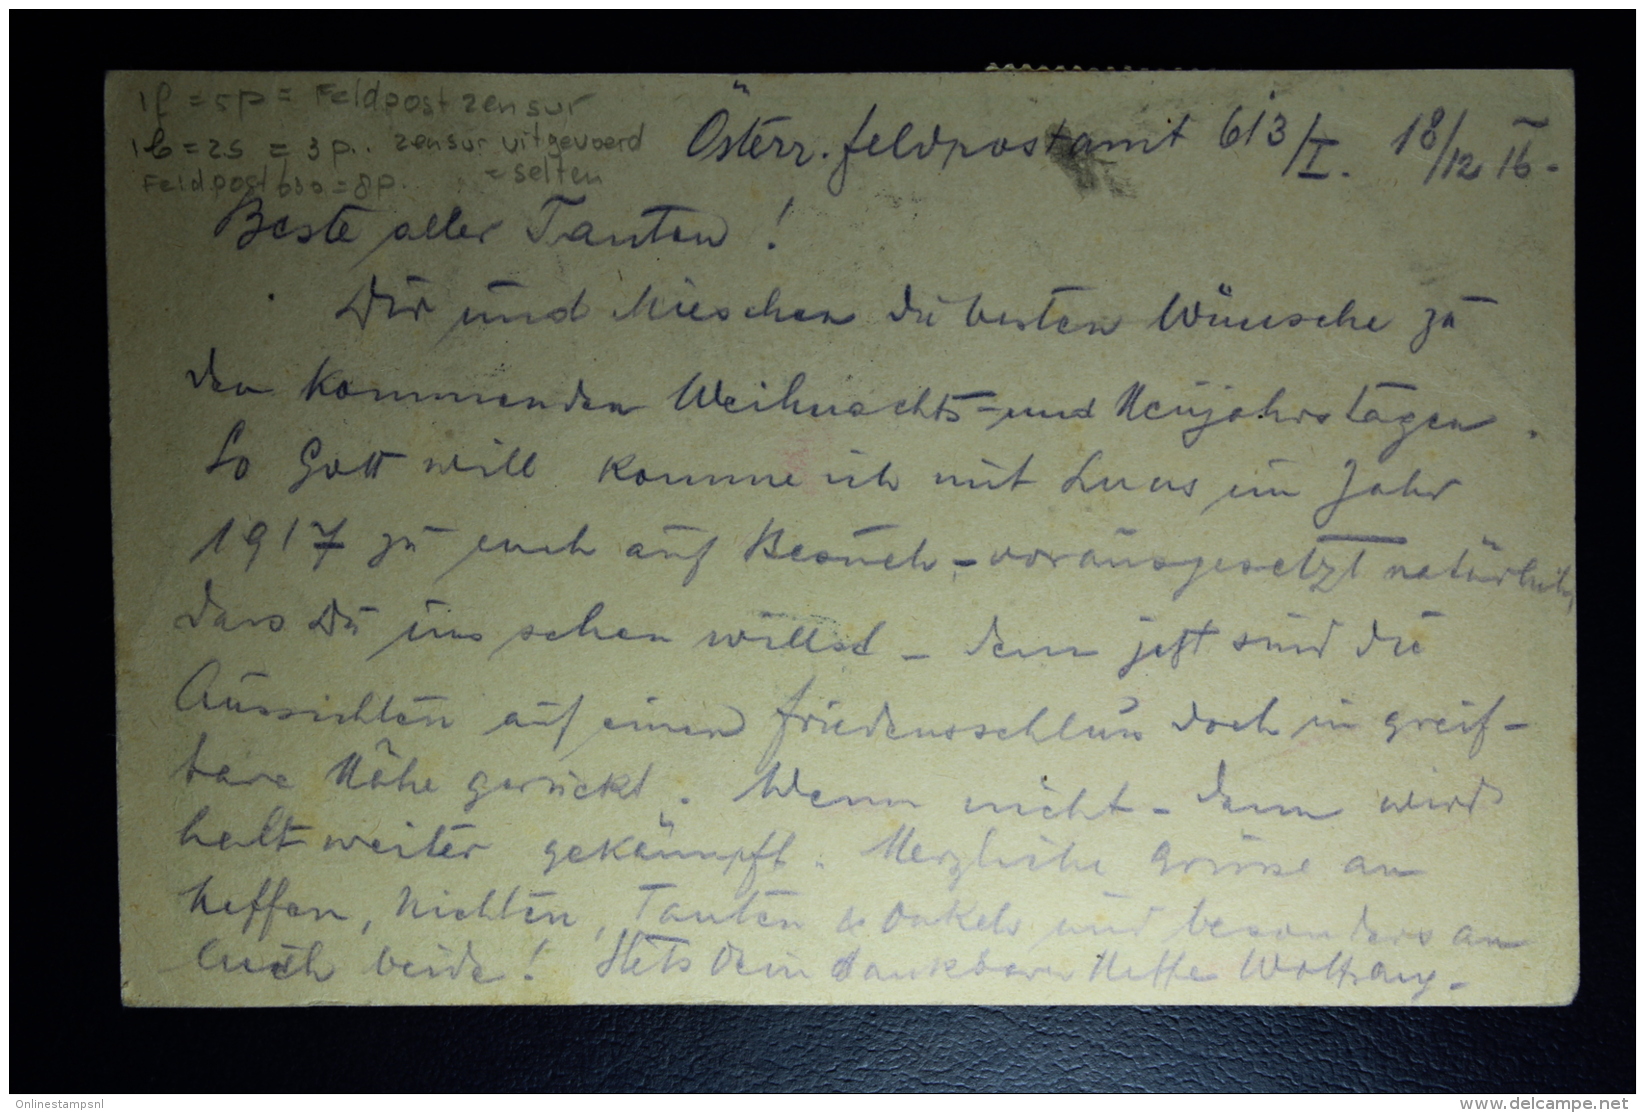 1f = 5p = Feldpost zensur
1b = 25 = 3p. zensur uitgevoerd
= selten
Feldpost 630 = 8p.
Österr. Feldpostamt 613/I. 18/12 16.
Beste aller Tanten !
Dir und Mieschen die besten Wünsche zu
den kommenden Weihnachts- und Neujahrstagen.
So Gott will komme ich mit im Jahr
1917 zu euch auf Besuch - vorausgesetzt natürlich,
dass Du uns sehen willst - denn jetzt sind die
Aussichten auf einen Friedensschluss doch in greif-
bare Nähe gerückt. Wenn nicht - dann wird
halt weiter gekämpft. Herzliche Grüsse an
Neffen, Nichten, Tanten & Onkels und besonders an
Euch beide! Stets Dein dankbarer Neffe Wolfgang.
Onlinestampsnl
delcampe.net